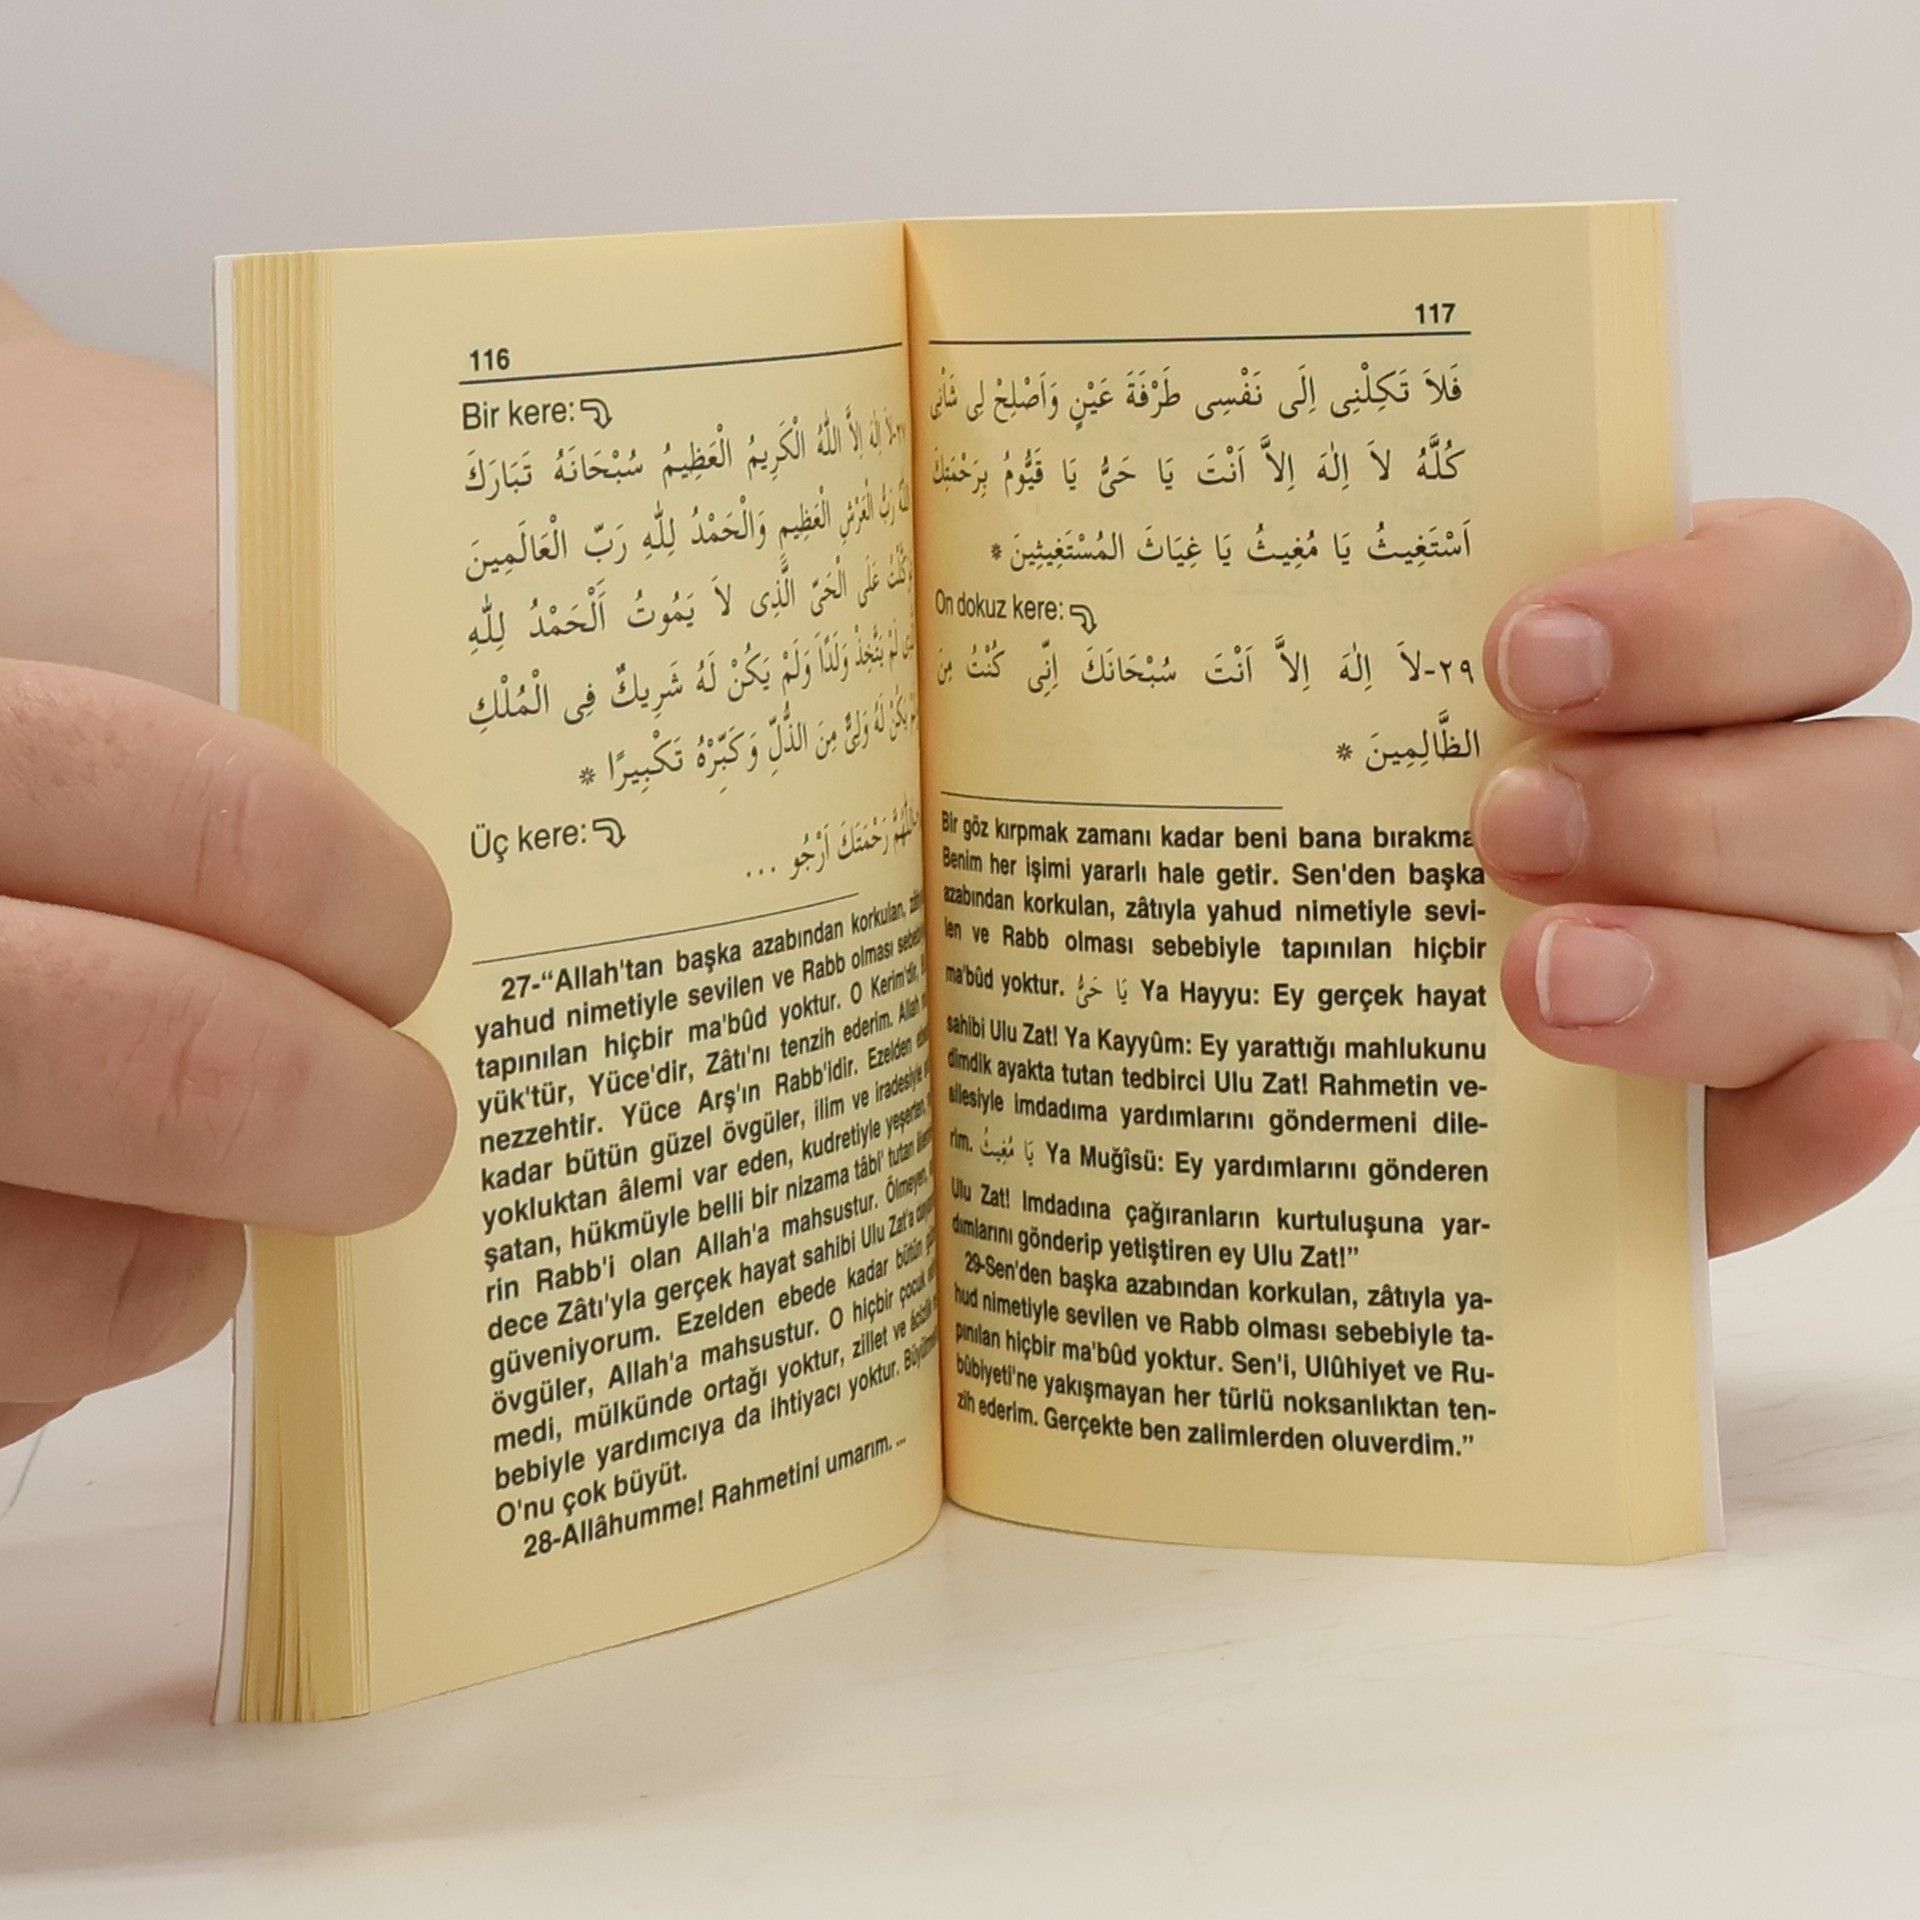 116
Bir kere:
٢٧-لاَ اِلٰهَ اِلاَّ اللّٰهُ الْكَرِيمُ الْعَظِيمُ سُبْحَانَهُ تَبَارَكَ
اللّٰهُ رَبُّ الْعَرْشِ الْعَظِيمِ وَالْحَمْدُ لِلّٰهِ رَبِّ الْعَالَمِينَ
تَوَكَّلْتُ عَلَى الْحَىِّ الَّذِى لاَ يَمُوتُ اَلْحَمْدُ لِلّٰهِ
الَّذِى لَمْ يَتَّخِذْ وَلَدًا وَلَمْ يَكُنْ لَهُ شَرِيكٌ فِى الْمُلْكِ
وَلَمْ يَكُنْ لَهُ وَلِىٌّ مِنَ الذُّلِّ وَكَبِّرْهُ تَكْبِيرًا *
Üç kere:
اَللّٰهُمَّ رَحْمَتَكَ اَرْجُو ...
27-“Allah'tan başka azabından korkulan,
yahud nimetiyle sevilen ve Rabb olması
tapınılan hiçbir ma'bûd yoktur. O Kerim'dir,
yük'tür, Yüce'dir, Zâtı'nı tenzih ederim. Allah
nezzehtir. Yüce Arş'ın Rabb'idir. Ezelden
kadar bütün güzel övgüler, ilim ve iradesiyle
yokluktan âlemi var eden, kudretiyle yeşerten,
şatan, hükmüyle belli bir nizama tâbi' tutan
rin Rabb'i olan Allah'a mahsustur. Ölmeyen,
dece Zâtı'yla gerçek hayat sahibi Ulu Zat'a
güveniyorum. Ezelden ebede kadar bütün
övgüler, Allah'a mahsustur. O hiçbir çocuk
medi, mülkünde ortağı yoktur, zillet ve
bebiyle yardımcıya da ihtiyacı yoktur.
O'nu çok büyüt.
28-Allâhumme! Rahmetini umarım. ...
117
فَلاَ تَكِلْنِى اِلَى نَفْسِى طَرْفَةَ عَيْنٍ وَاَصْلِحْ لِى شَاْنِى
كُلَّهُ لاَ اِلٰهَ اِلاَّ اَنْتَ يَا حَىُّ يَا قَيُّومُ بِرَحْمَتِكَ
اَسْتَغِيثُ يَا مُغِيثُ يَا غِيَاثَ الْمُسْتَغِيثِينَ *
On dokuz kere:
٢٩-لاَ اِلٰهَ اِلاَّ اَنْتَ سُبْحَانَكَ اِنِّى كُنْتُ مِنَ
الظَّالِمِينَ *
Bir göz kırpmak zamanı kadar beni bana bırakma
Benim her işimi yararlı hale getir. Sen'den başka
azabından korkulan, zâtıyla yahud nimetiyle sevi-
len ve Rabb olması sebebiyle tapınılan hiçbir
ma'bûd yoktur. يَا حَىُّ Ya Hayyu: Ey gerçek hayat
sahibi Ulu Zat! Ya Kayyûm: Ey yarattığı mahlukunu
dimdik ayakta tutan tedbirci Ulu Zat! Rahmetin ve-
silesiyle imdadıma yardımlarını göndermeni dile-
rim. يَا مُغِيثُ Ya Muğîsü: Ey yardımlarını gönderen
Ulu Zat! Imdadına çağıranların kurtuluşuna yar-
dımlarını gönderip yetiştiren ey Ulu Zat!”
29-Sen'den başka azabından korkulan, zâtıyla ya-
hud nimetiyle sevilen ve Rabb olması sebebiyle ta-
pınılan hiçbir ma'bûd yoktur. Sen'i, Ulûhiyet ve Ru-
bûbiyeti'ne yakışmayan her türlü noksanlıktan ten-
zih ederim. Gerçekte ben zalimlerden oluverdim.”